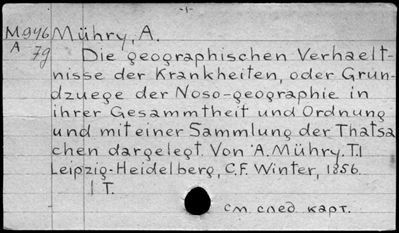 -1-
M946 Mühry, A.
A
79 Die geographischen Verhaelt-
nisse der Krankheiten, oder Grun-
dzuege der Noso-geographie in
ihrer Gesammtheit und Ordnung
und mit einer Sammlung der Thatsa
chen dargelegt. Von A. Mühry. T.I
Leipzig-Heidelberg, C.F. Winter, 1856.
1 T.
см. след. карт.